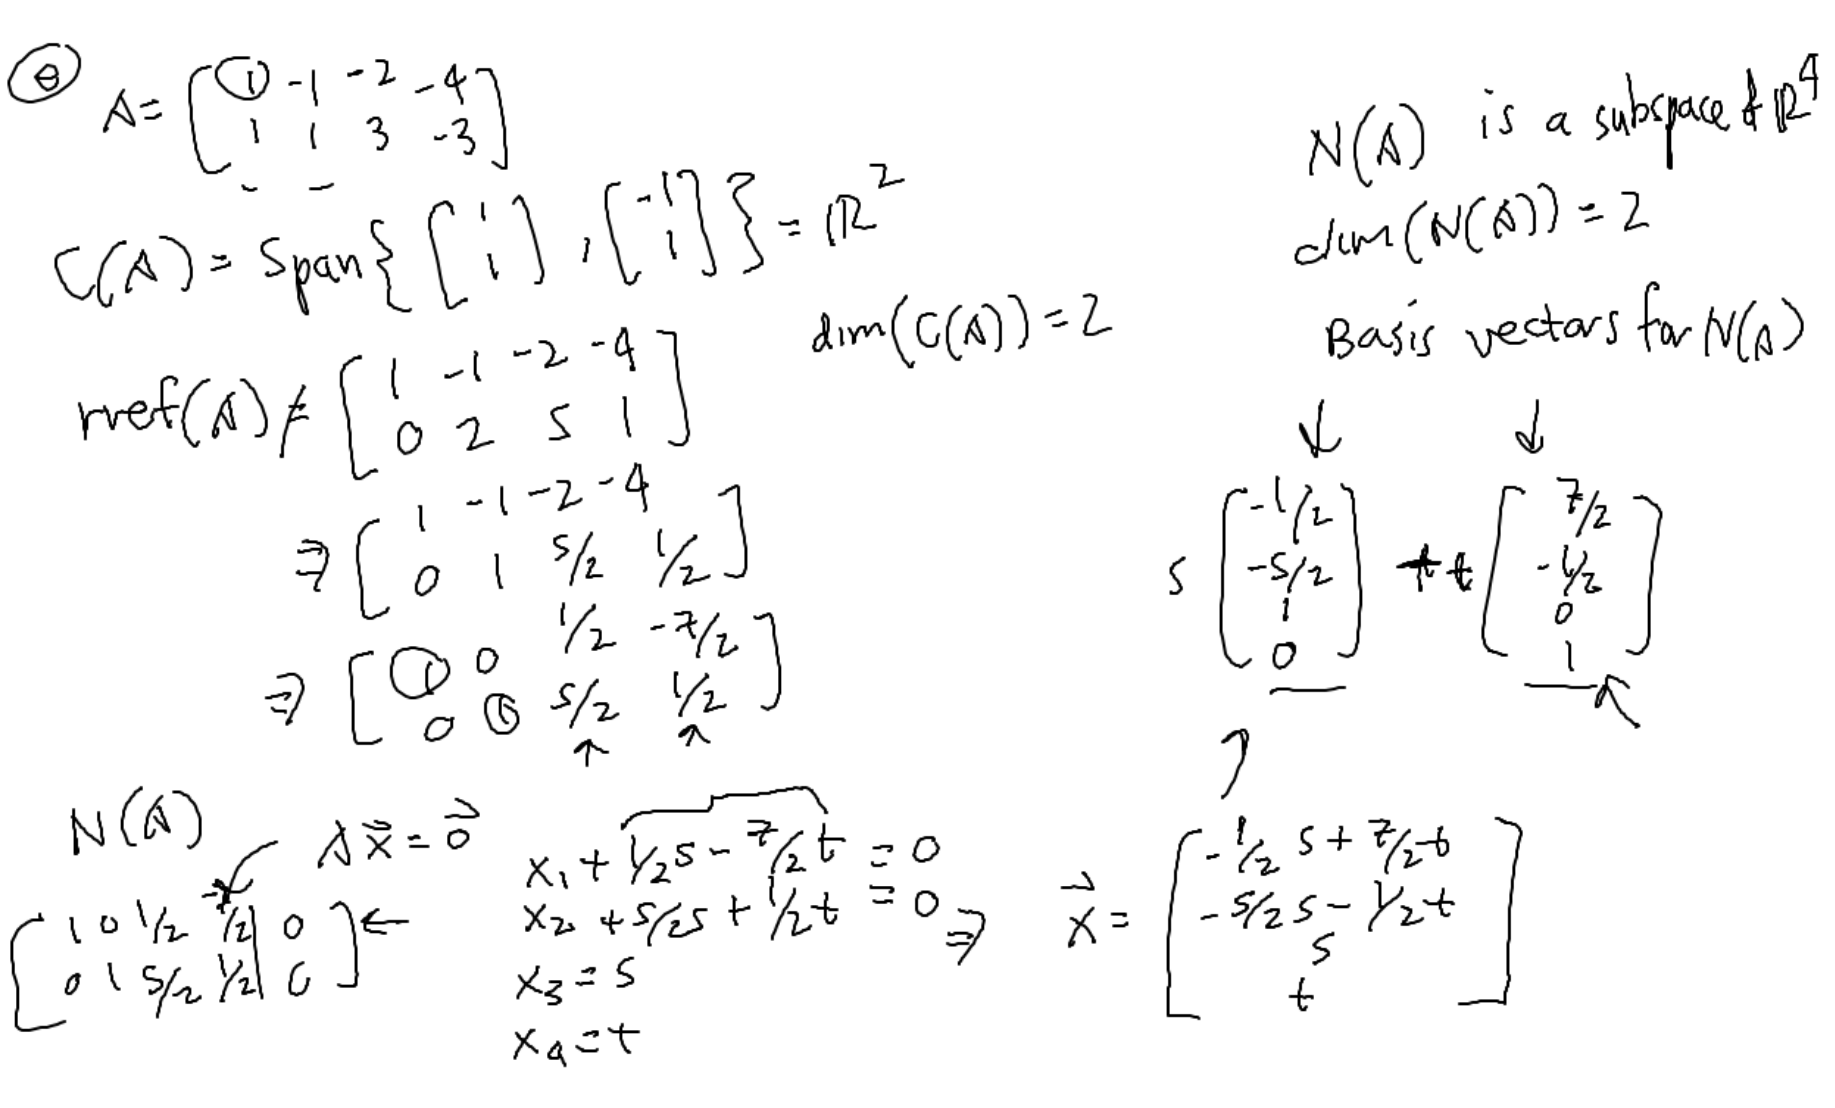 ⓔ A = [ 1 -1 -2 -4
1 1 3 -3 ]
C(A) = Span{ [ 1 1 ] , [ -1 1 ] } = ℝ²
dim(C(A)) = 2
rref(A) ≠ [ 1 -1 -2 -4
0 2 5 1 ]
⇒ [ 1 -1 -2 -4
0 1 5/2 1/2 ]
⇒ [ 1 0 1/2 -7/2
0 1 5/2 1/2 ]
↑ ↑
N(A) A x⃗ = 0⃗
[ 1 0 1/2 -7/2 | 0 ] ←
0 1 5/2 1/2 | 0
x₁ + 1/2 s - 7/2 t = 0
x₂ + 5/2 s + 1/2 t = 0 ⇒
x₃ = s
x₄ = t
x⃗ = [ -1/2 s + 7/2 t
-5/2 s - 1/2 t
s
t ]
N(A) is a subspace of ℝ⁴
dim(N(A)) = 2
Basis vectors for N(A)
↓ ↓
s [ -1/2 -5/2 1 0 ] + t [ 7/2 -1/2 0 1 ]